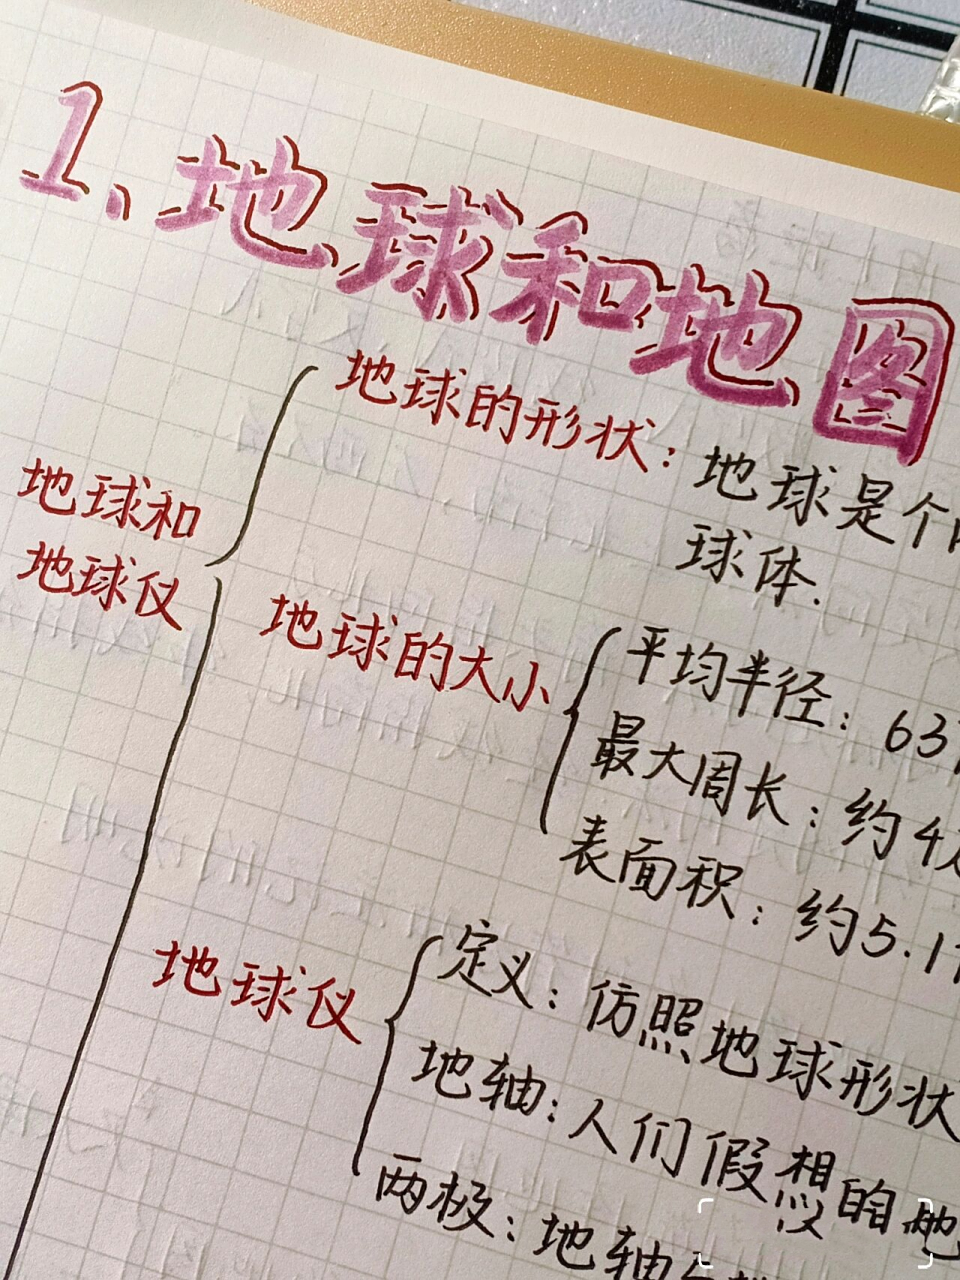 1、地球和地图
地球的形状：地球是个
球体.
地球和
地球仪
地球的大小
平均半径：63
最大周长：约4
表面积：约5.1
地球仪
定义：仿照地球形状
地轴：人们假想的地
两极：地轴